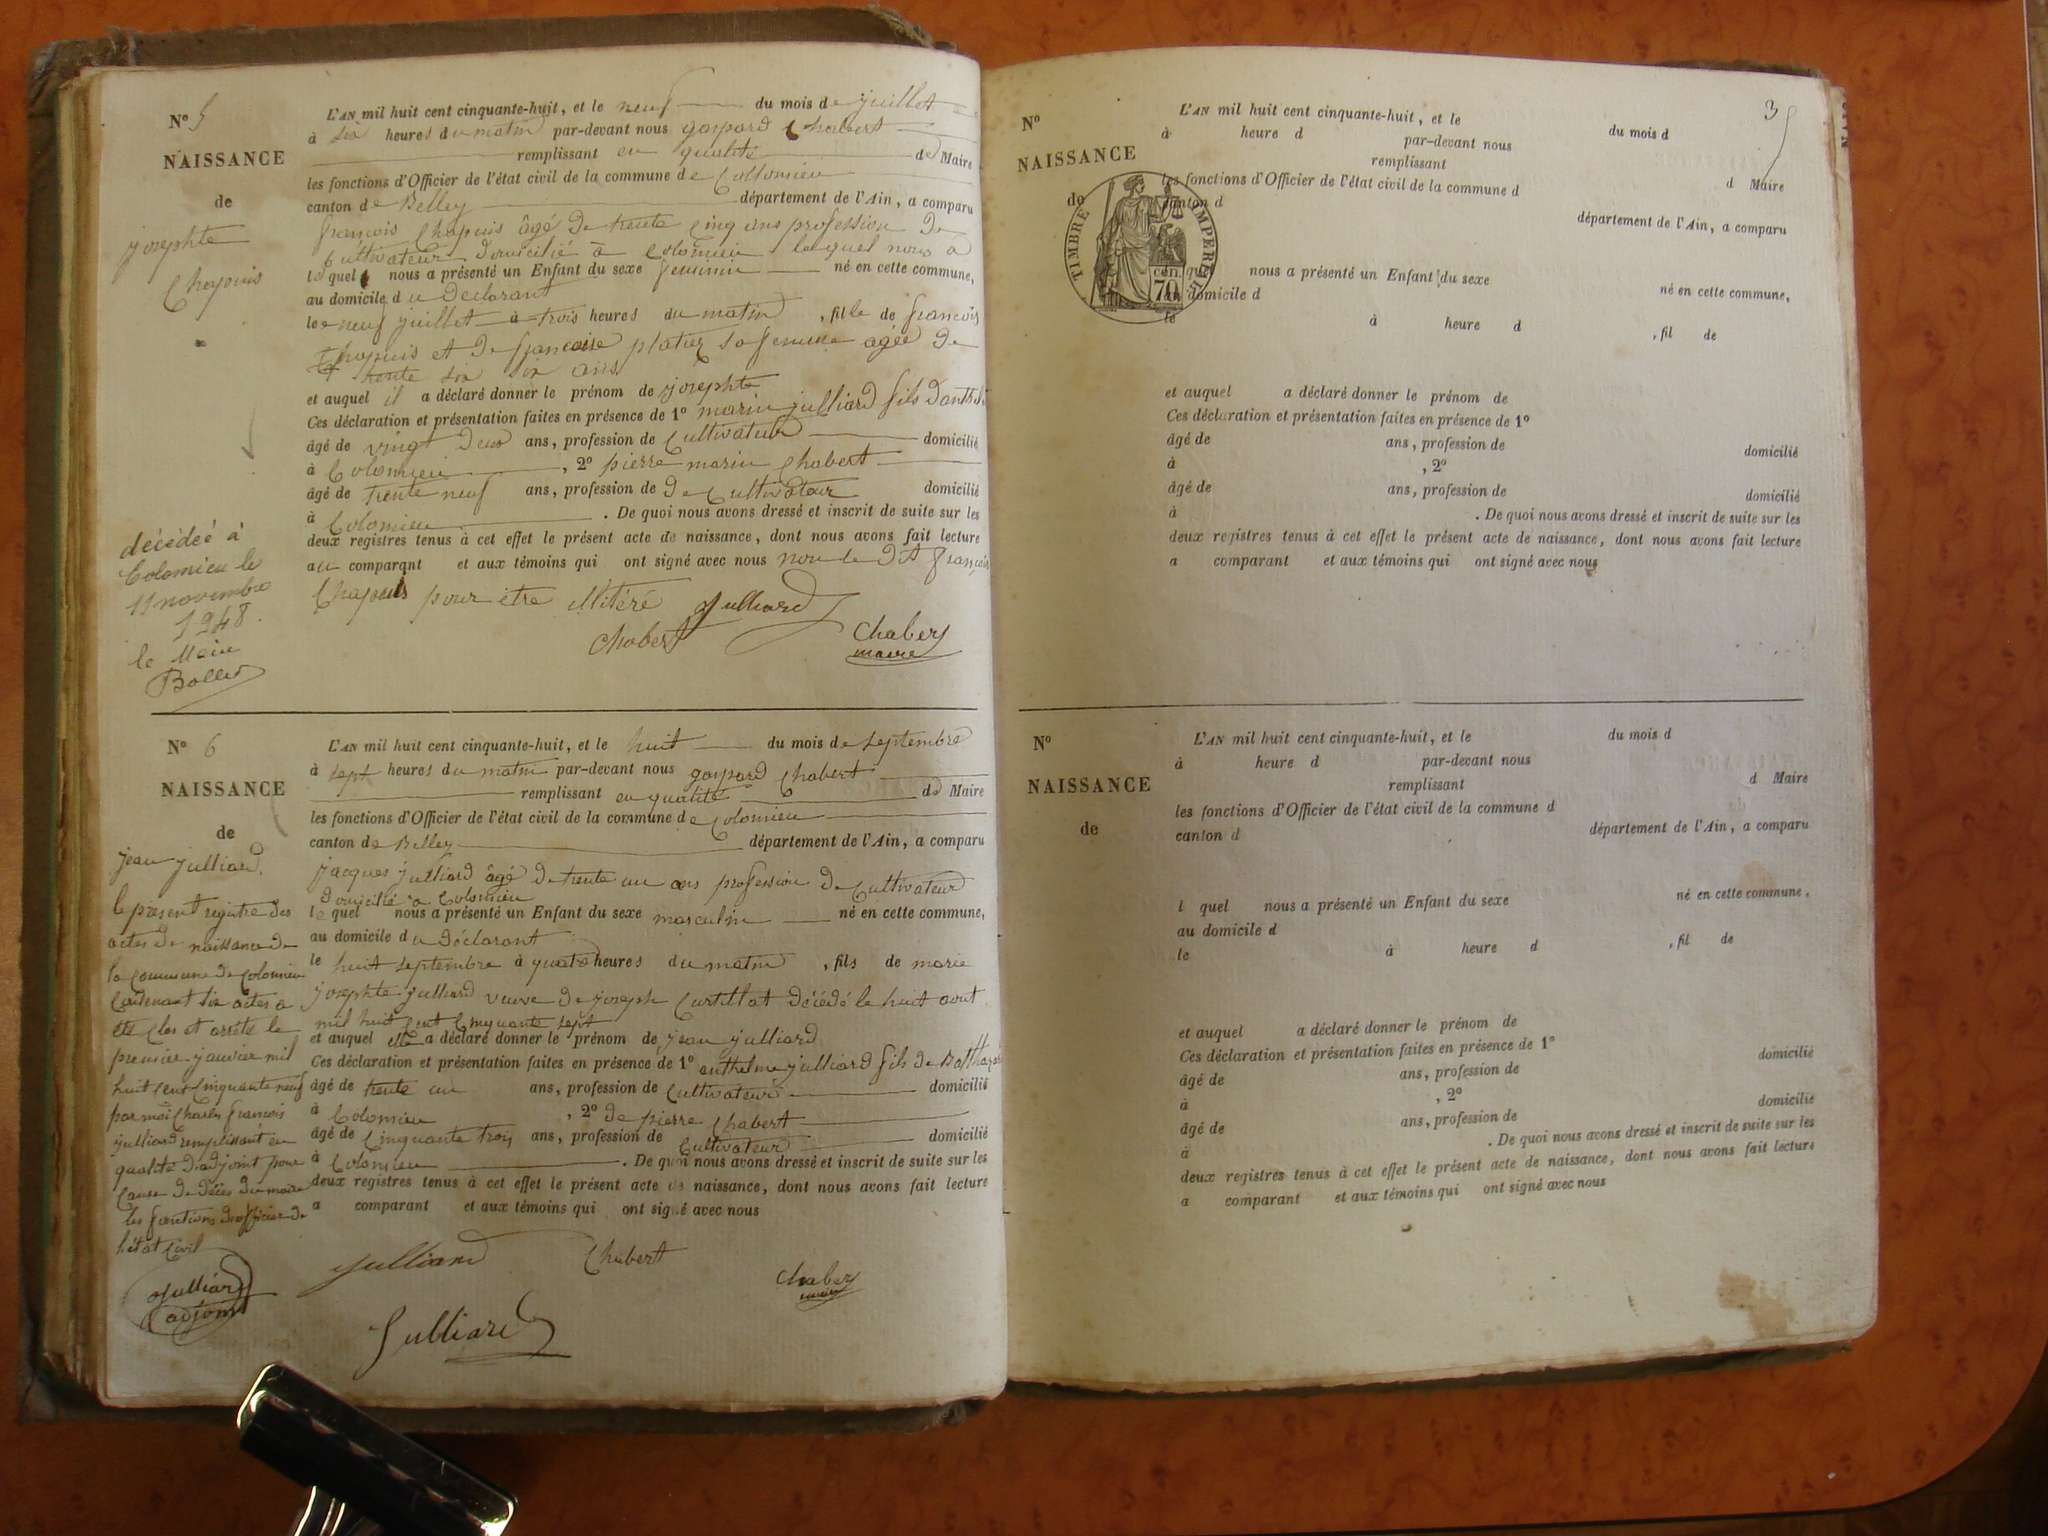 Nº 5
NAISSANCE
de
josephte
Chapuis
L'AN mil huit cent cinquante-huit, et le neuf du mois de juillet
à six heures du matin par-devant nous gaspard Chabert
remplissant en qualité de Maire
les fonctions d'Officier de l'état civil de la commune de Collomieu
canton de Belley département de l'Ain, a comparu
françois Chapuis âgé de trente cinq ans profession de
Cultivateur domicilié à Colomieu lequel nous a
lequel nous a présenté un Enfant du sexe feminin né en cette commune,
au domicile du declarant
le neuf juillet à trois heures du matin, fille de françois
Chapuis et de francoise platier sa femme agée de
trente six ans
et auquel il a déclaré donner le prénom de josephte
Ces déclaration et présentation faites en présence de 1º marin julliard fils d'anth
âgé de vingt deux ans, profession de Cultivateur domicilié
à Colomieu, 2º pierre marin Chabert
âgé de trente neuf ans, profession de de Cultivateur domicilié
à Colomieu. De quoi nous avons dressé et inscrit de suite sur les
deux registres tenus à cet effet le présent acte de naissance, dont nous avons fait lecture
au comparant et aux témoins qui ont signé avec nous non le dit françois
Chapuis pour être illitéré Julliard
Chabert Chabert
maire
décédée à
Colomieu le
11 novembre
1948.
le Maire
Nº 6
NAISSANCE
de
jean julliard.
L'AN mil huit cent cinquante-huit, et le huit du mois de septembre
à sept heures du matin par-devant nous gaspard Chabert
remplissant en qualité de Maire
les fonctions d'Officier de l'état civil de la commune de Colomieu
canton de Belley département de l'Ain, a comparu
jacques julliard âgé de trente un ans profession de Cultivateur
domicilié à Colomieu
lequel nous a présenté un Enfant du sexe masculin né en cette commune,
au domicile du déclarant
le huit septembre à quatre heures du matin, fils de marie
josephte julliard veuve de joseph Curtillat décédé le huit aout
mil huit cent cinquante sept
et auquel elle a déclaré donner le prénom de jean julliard
Ces déclaration et présentation faites en présence de 1º enthelme julliard fils de Balthazar
âgé de trente un ans, profession de Cultivateur domicilié
à Colomieu, 2º de pierre Chabert
âgé de Cinquante trois ans, profession de Cultivateur domicilié
à Colomieu. De quoi nous avons dressé et inscrit de suite sur les
deux registres tenus à cet effet le présent acte de naissance, dont nous avons fait lecture
a comparant et aux témoins qui ont signé avec nous
le présent registre des
actes de naissance de
la Commune de Colomieu
Contenant six actes a
été clos et arrêté le
premier janvier mil
huit cent cinquante neuf
par moi Charles françois
julliard remplissant en
qualité d'adjoint pour
Cause de décès du maire
les fonctions d'officier de
l'état Civil
Julliard
adjoint
Julliard Chabert Chabert
maire
Julliard
35
Nº
NAISSANCE
de
TIMBRE IMPERIAL
70 cen.
L'AN mil huit cent cinquante-huit, et le du mois d
à heure d par-devant nous
remplissant d Maire
les fonctions d'Officier de l'état civil de la commune d
canton d département de l'Ain, a comparu
quel nous a présenté un Enfant du sexe né en cette commune,
au domicile d
le à heure d, fil de
et auquel a déclaré donner le prénom de
Ces déclaration et présentation faites en présence de 1º
âgé de ans, profession de domicilié
à, 2º
âgé de ans, profession de domicilié
à. De quoi nous avons dressé et inscrit de suite sur les
deux registres tenus à cet effet le présent acte de naissance, dont nous avons fait lecture
a comparant et aux témoins qui ont signé avec nous
Nº
NAISSANCE
de
L'AN mil huit cent cinquante-huit, et le du mois d
à heure d par-devant nous
remplissant d Maire
les fonctions d'Officier de l'état civil de la commune d
canton d département de l'Ain, a comparu
l quel nous a présenté un Enfant du sexe né en cette commune,
au domicile d
le à heure d, fil de
et auquel a déclaré donner le prénom de
Ces déclaration et présentation faites en présence de 1º
âgé de ans, profession de domicilié
à, 2º
âgé de ans, profession de domicilié
à. De quoi nous avons dressé et inscrit de suite sur les
deux registres tenus à cet effet le présent acte de naissance, dont nous avons fait lecture
a comparant et aux témoins qui ont signé avec nous